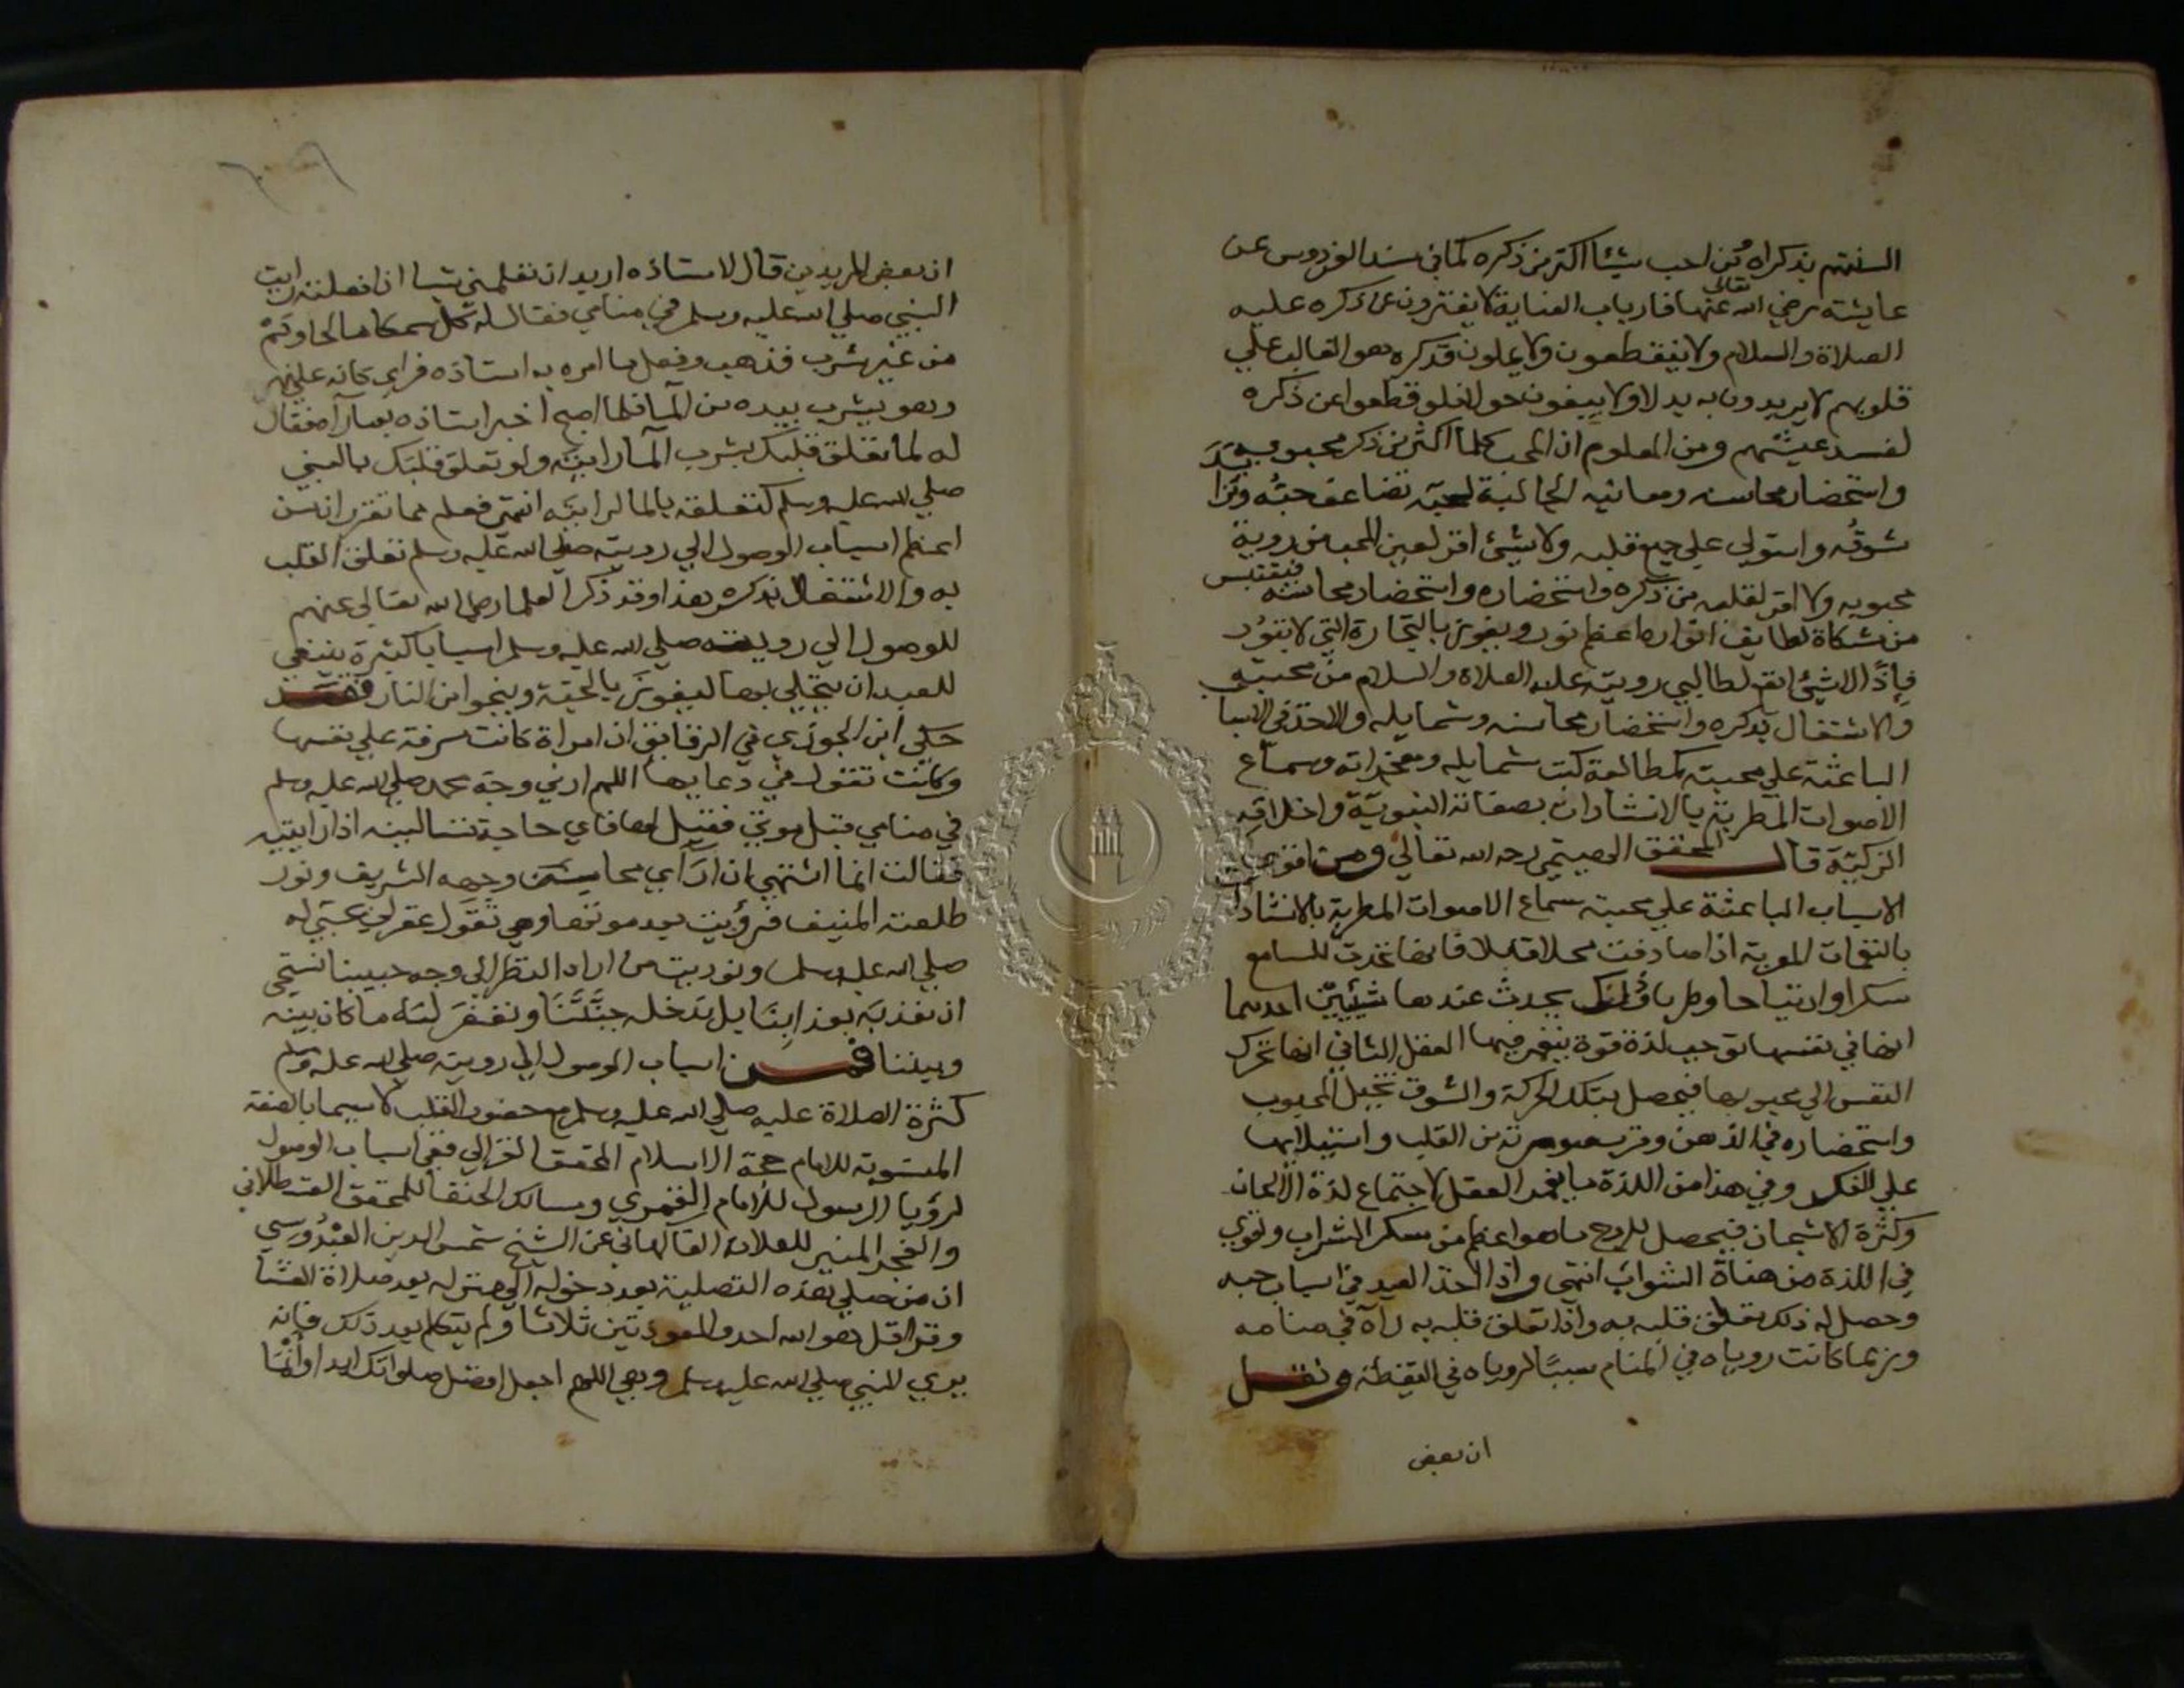 السنتهم بذكراه فمن احب شيئا اكثر من ذكره كما في مسند الفردوس عن
عايشة رضي الله تعالى عنها فارباب العناية لا يفترون عن ذكره عليه
الصلاة والسلام ولا ينقطعون ولا يملون فذكره هو الغالب علي
قلوبهم لا يريدون به بدلا ولا يبغون حولا فلو قطعوا عن ذكره
لفسد عيشهم ومن المعلوم ان المحب كلما اكثر من ذكر محبوبه
واستحضار محاسنه ومعانيه الجالبة لحبه تضاعف حبه وتزايد
شوقه واستولي علي جميع قلبه ولا شيئ اقر لعين المحب من روية
محبوبه ولا اقر لقلبه من ذكره واستحضاره واستحضار محاسنه فيقتبس
من مشكاة لطايف انواره اعظم نور ويفوز بالتجارة التي لا تبور
فاذًا لا شيئ انفع لطالبي رويته عليه الصلاة والسلام من محبته
والاشتغال بذكره واستحضار محاسنه وشمايله والاخذ في الاسباب
الباعثة علي محبته كمطالعة كتب شمايله ومعجزاته وسماع
الاصوات المطربة بالانشادات بصفاته النبوية واخلاقه
الزكية قال المحقق الهيتمي رحمه الله تعالي ومن اقوي
الاسباب الباعثة علي محبته سماع الاصوات المطربة بالانشادات
بالنغمات المعربة اذا صادفت محلا قابلا فانها تحدث للسامع
سكرا وارتياحا وطربا وذلك يحدث عندها شيئين احدهما
انها في نفسها توجب لذة قوة ينغمر فيها العقل الثاني انها تحرك
النفس الي محبوبها فيحصل بتلك الحركة والشوق تخيل المحبوب
واستحضاره في الذهن وقرب صورته من القلب واستيلايها
علي الفكر وفي هذا من اللذة ما يغمر العقل لاجتماع لذة الالحان
وكثرة الاشجان فيحصل للروح ما هو اعظم من سكر الشراب وقوي
في اللذة من هناة الشواب انتهى واذا اخذ العبد في اسباب حبه
وحصل له ذلك تعلق قلبه به واذا تعلق قلبه به رآه في منامه
وربما كانت روياه في المنام سببًا لروياه في اليقظة ونقل
ان بعض
ان بعض المريدين قال لاستاذه اريد ان تعلمني شيا اذا فعلته رايت
النبي صلي الله عليه وسلم في منامي فقال له كل سمكا مالحا ونم
من غير شرب فذهب وفعل ما امره به استاذه فراي كانه علي نهر
وهو يشرب بيده من المآ فلما اصبح اخبر استاذه بما رآ فقال
له لما تعلق قلبك بشرب المآ رايته ولو تعلق قلبك بالنبي
صلي الله عليه وسلم كتعلقه بالما لرايته انتهى فعلم مما تقرر ان من
اعظم اسباب الوصول الي رويته صلي الله عليه وسلم تعلق القلب
به والاشتغال بذكره هذا وقد ذكر العلما رضي الله تعالي عنهم
للوصول الي رويته صلي الله عليه وسلم اسبابا كثيرة ينبغي
للعبد ان يتحلي بها ليفوز بالجنة وينجوا من النار فقد
حكي ابن الجوزي في الرقايق ان امراة كانت مسرفة علي نفسها
وكانت تقول في دعايها اللهم ارني وجه محمد صلي الله عليه وسلم
في منامي قبل موتي فقيل لها فاي حاجة تسالينه اذا رايتيه
فقالت انما اشتهي ان اراي محاسن وجهه الشريف ونور
طلعته المنيف فرؤيت بعد موتها وهي تقول غفر لي بحبتي له
صلي الله عليه وسلم ونوديت من اراد النظر الي وجه حبيبنا نستحي
ان نعذبه بعذابنا بل ندخله جنتنا ونغفر له ما كان بينه
وبيننا فمن اسباب الوصول الي رويته صلي الله عليه وسلم
كثرة الصلاة عليه صلي الله عليه وسلم مع حضور القلب لا سيما بالصفة
المنسوبة للامام حجة الاسلام المحقق الغزالي ففي اسباب الوصول
لرؤيا الرسول للامام الغمري ومسالك الحنفا للمحقق القسطلاني
والفجر المنير للعلامة الفاكهاني عن الشيخ شمس الدين العبدوسي
ان من صلي بهذه التصلية بعد دخوله الي منزله بعد صلاة العشا
وقرا قل هو الله احد والمعوذتين ثلاثا ولم يتكلم بعد ذلك فانه
يري النبي صلي الله عليه وسلم وهي اللهم اجعل افضل صلواتك ابدا وانما